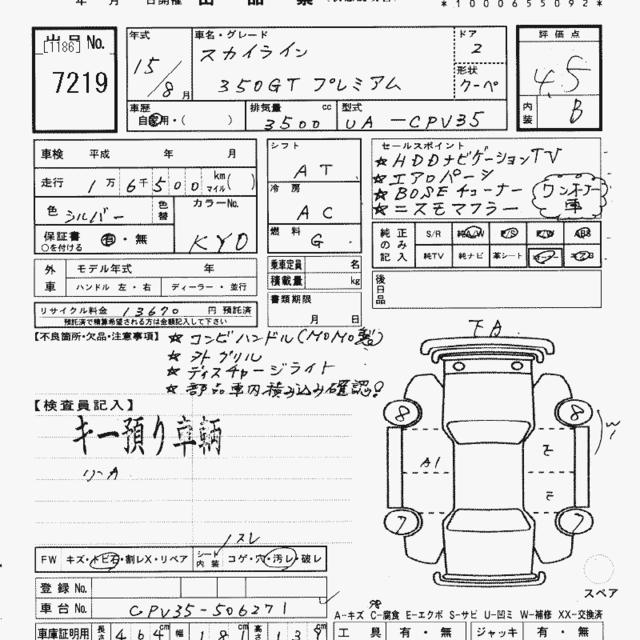 *1000655092*
[1186] No.
7219
年式 15/8月
車名・グレード スカイライン
350GT プレミアム
ドア 2
形状 クーペ
評価点 4.5
内装 B
車歴 自家用・( )
排気量 3500 cc
型式 UA-CPV35
車検 平成 年 月
走行 1万6千500 km マイル( )
色 シルバー 色替
カラーNo. KY0
保証書 ○を付ける 有・無
シフト AT
冷房 AC
燃料 G
セールスポイント
★HDDナビゲーションTV
★エアロパーツ
★BOSEチューナー
★ニスモマフラー
ワンオーナー車
純正のみ記入 S/R 純A/W P/S P/W ABS
純TV 純ナビ 革シート
外車 モデル年式 年
ハンドル 左・右 ディーラー・並行
乗車定員 名
積載量 kg
書類期限 月 日
後日品
リサイクル料金 13670 円 預託済
預託済で精算希望される方は金額記入して下さい
【不良箇所・欠品・注意事項】
★コンビハンドル(MOMO製)
★外グリル
★ディスチャージライト
★部品車内積み込み確認!
【検査員記入】
キー預り車輌
リーカ
下A
8
8
A1
E
E
W1
7
7
スレ
FW キズ・トビ石・割レX・リペア
シート内装 コゲ・穴・汚レ・破レ
スペア
登録No.
車台No. CPV35-506271
A=キズ C=腐食 E=エクボ S=サビ U=凹ミ W=補修 XX=交換済
車庫証明用 長さ 464cm 幅 181cm 高さ 139cm
工具 有・無 ジャッキ 有・無